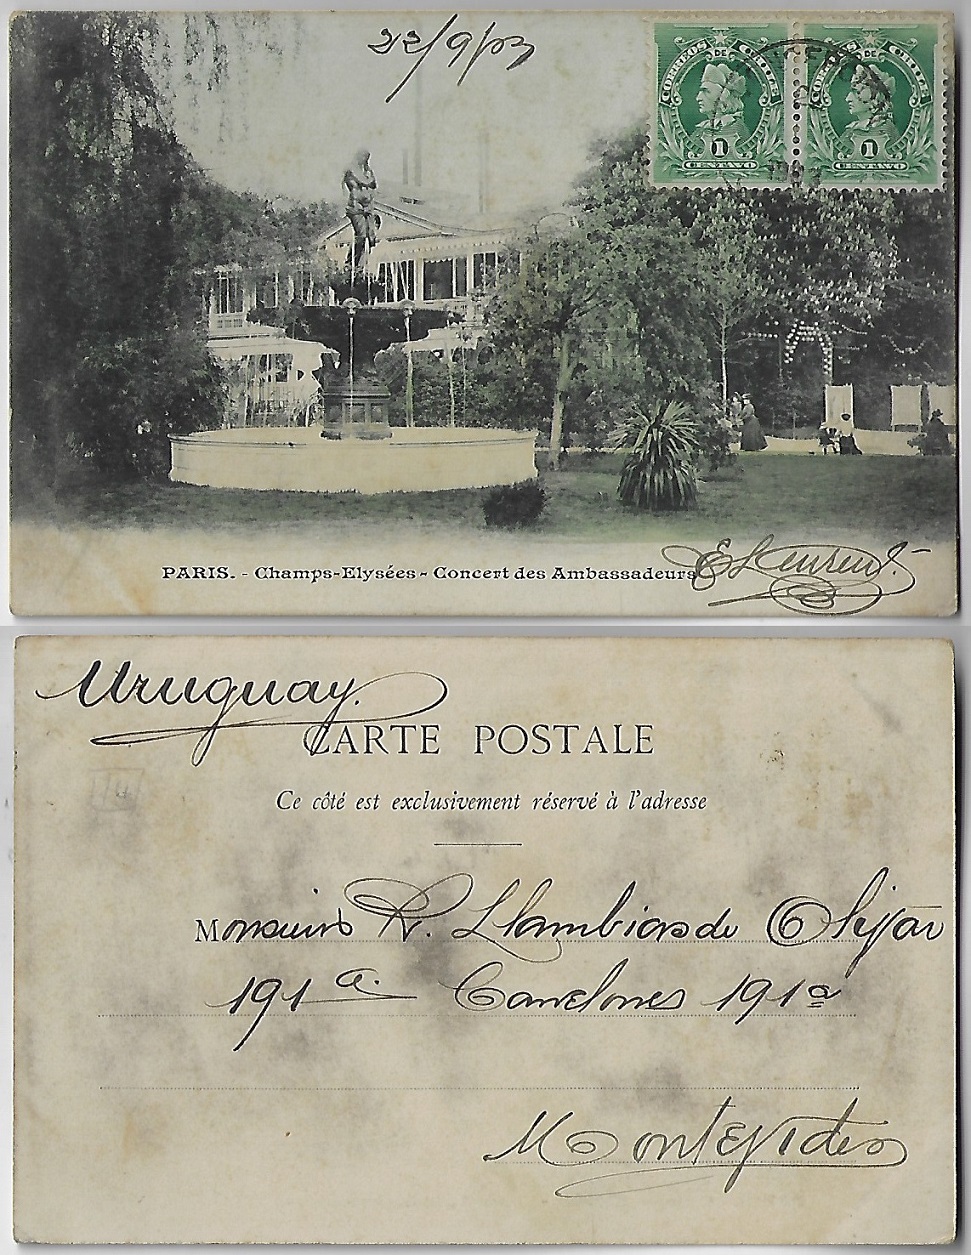 22/9/03
CORREOS DE CHILE
1
CENTAVO
CORREOS DE CHILE
1
CENTAVO
PARIS. - Champs-Elysées - Concert des Ambassadeurs
Uruguay.
CARTE POSTALE
Ce côté est exclusivement réservé à l'adresse
R. Llambias de Olivar
191a. Canelones 191a
Montevideo